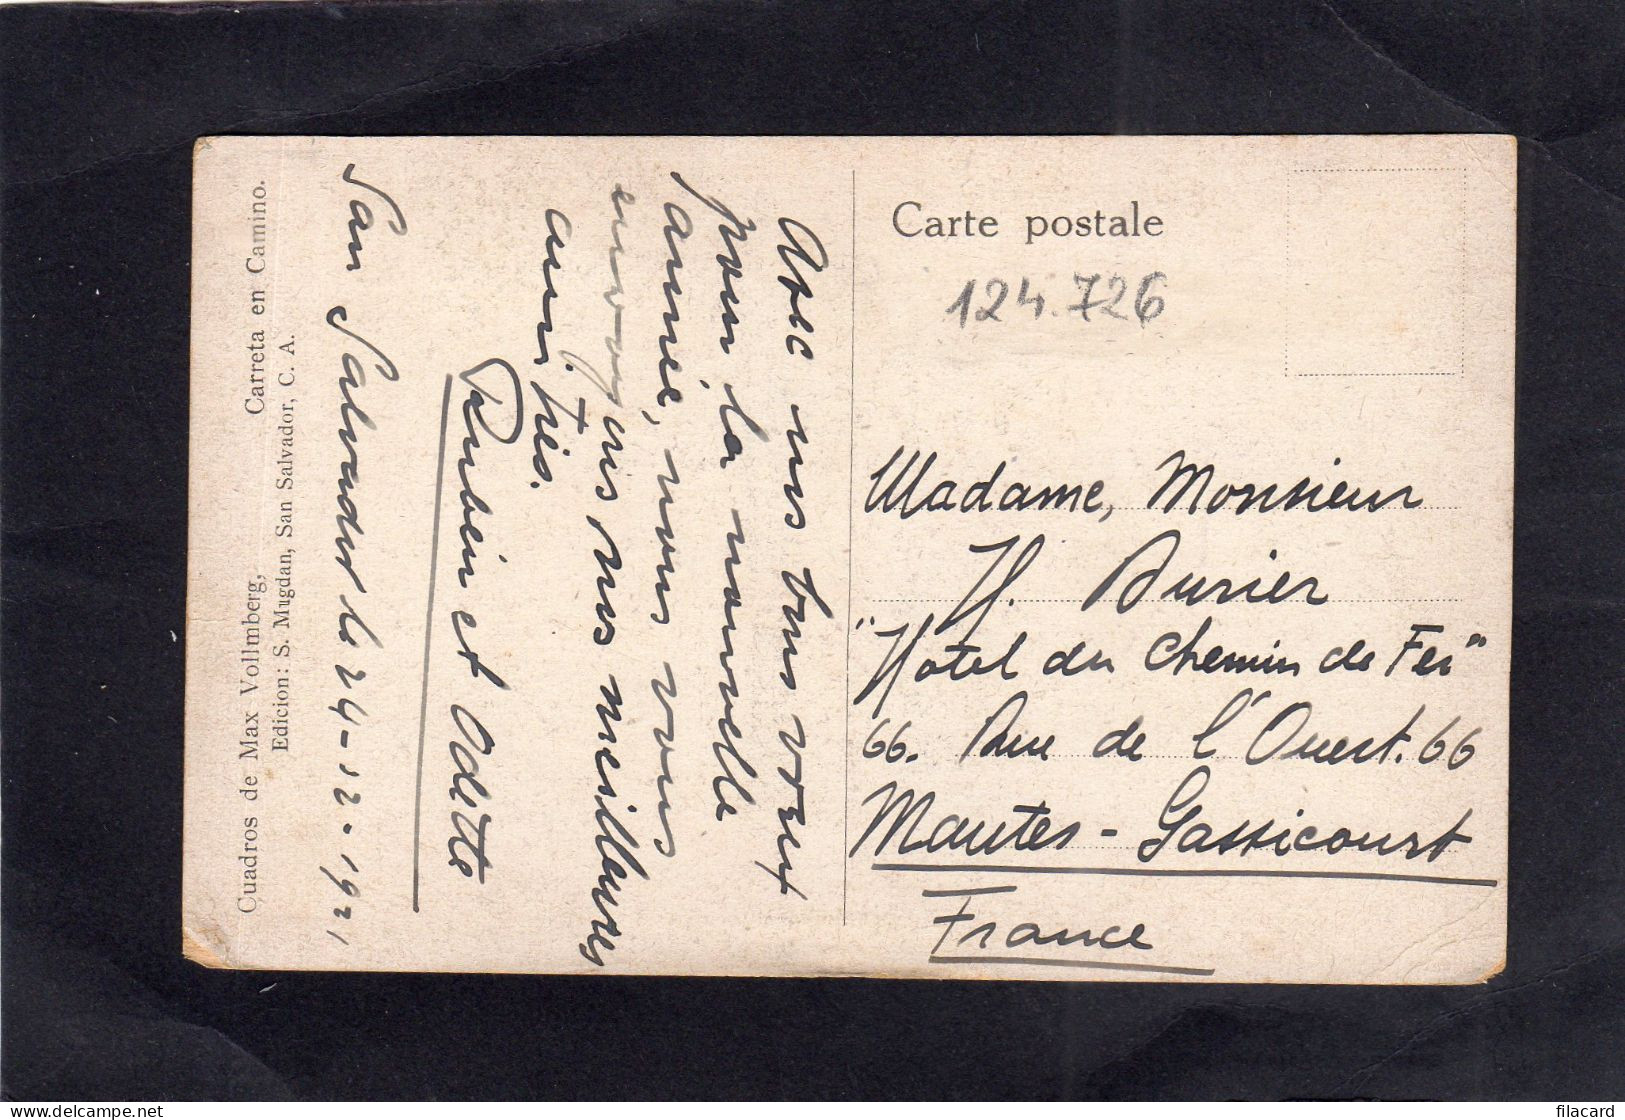 Cuadros de Max Vollmberg, Carreta en Camino.
Edicion: S. Mugdan, San Salvador, C. A.
San Salvador le 24-12-1921
Avec nos bons vœux
pour la nouvelle
année, nous vous
envoyons nos meilleures
amitiés.
Rubein et Odette
Carte postale
124.726
Madame, Monsieur
H. Burier
"Hotel du Chemin de Fer"
66. Rue de l'Ouest. 66
Mantes-Gassicourt
France
filacard